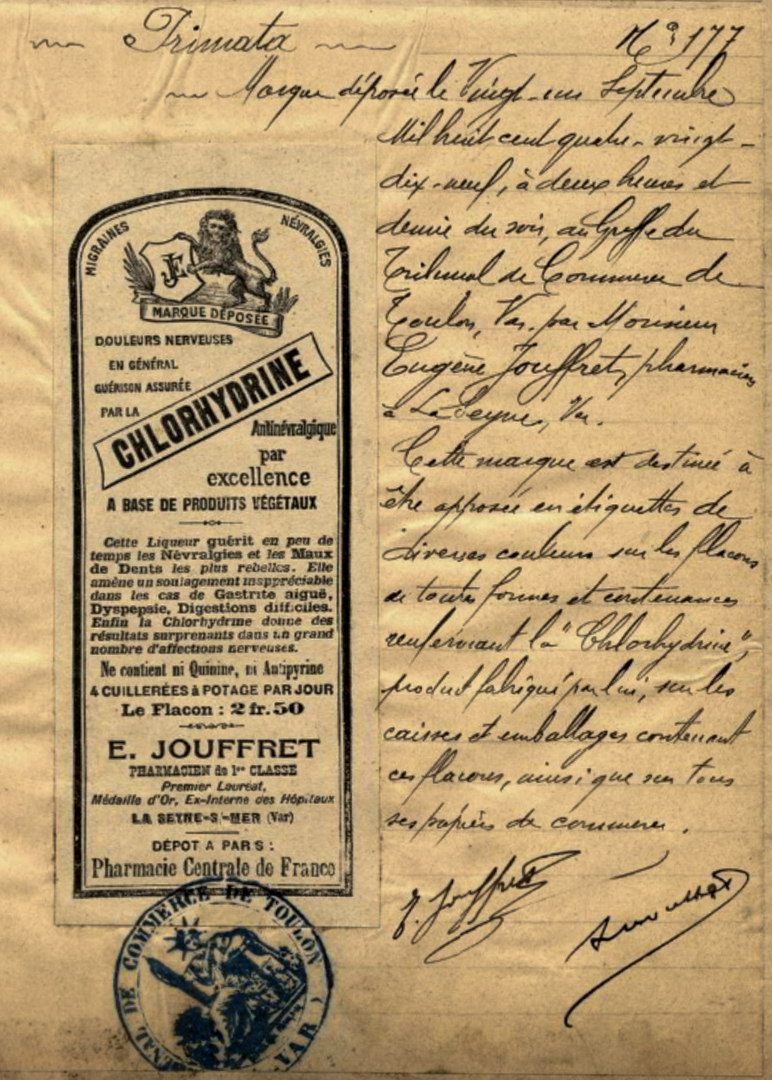 N° 177
Marque déposée le Vingt-un Septembre
Mil huit cent quatre-vingt-
dix-neuf, à deux heures et
demie du soir, au Greffe du
Tribunal de Commerce de
Toulon, Var, par Monsieur
Eugène Jouffret, pharmacien
à La Seyne, Var.
Cette marque est destinée à
être apposée en étiquettes de
diverses couleurs sur les flacons
de toutes formes et contenances
renfermant la "Chlorhydrine",
produit fabriqué par lui, sur les
caisses et emballages contenant
ces flacons, ainsi que sur tous
ses papiers de commerce.
E. Jouffret
MIGRAINES
NÉVRALGIES
JE
MARQUE DÉPOSÉE
DOULEURS NERVEUSES
EN GÉNÉRAL
GUÉRISON ASSURÉE
PAR LA
CHLORHYDRINE
Antinévralgique
par
excellence
A BASE DE PRODUITS VÉGÉTAUX
Cette Liqueur guérit en peu de
temps les Névralgies et les Maux
de Dents les plus rebelles. Elle
amène un soulagement inappréciable
dans les cas de Gastrite aiguë,
Dyspepsie, Digestions difficiles.
Enfin la Chlorhydrine donne des
résultats surprenants dans un grand
nombre d'affections nerveuses.
Ne contient ni Quinine, ni Antipyrine
4 CUILLERÉES à POTAGE PAR JOUR
Le Flacon : 2 fr. 50
E. JOUFFRET
PHARMACIEN de 1re CLASSE
Premier Lauréat,
Médaille d'Or, Ex-Interne des Hôpitaux
LA SEYNE-S/-MER (Var)
DÉPOT A PARIS :
Pharmacie Centrale de France
NAL DE COMMERCE DE TOULON
(VAR)